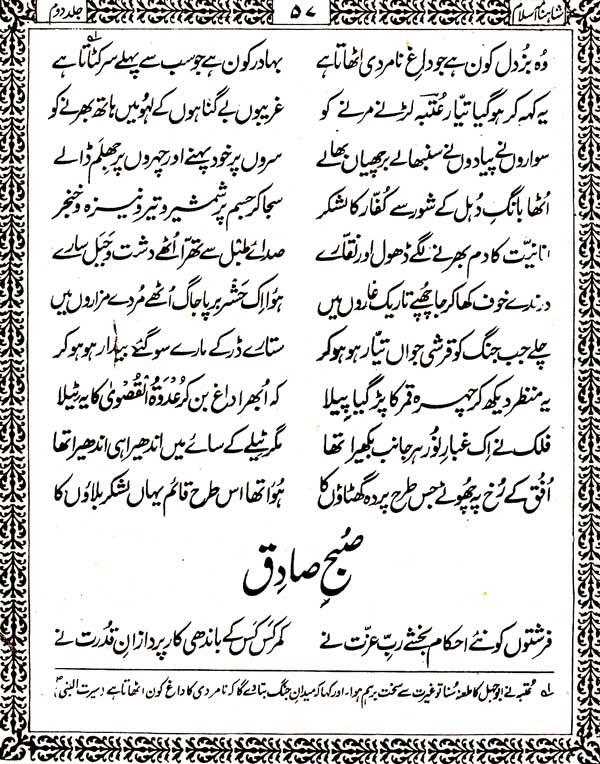 شاہنامہ اسلام ۵۷ جلد دوم
وُہ بزُدل کون ہے جو داغِ نامردی اٹھاتا ہے بہادر کون ہے جو سب سے پہلے سر کٹاتا ہے ؎۱
یہ کہہ کر ہو گیا تیّار عُتبَہ لڑنے مرنے کو غریبوں بے گناہوں کے لہُو میں ہاتھ بھرنے کو
سواروں نے پیادوں نے سنبھالے برچھیاں بھالے سروں پر خود پہنے اور چہروں پر جھِلم ڈالے
اُٹھا بانگِ دُہل کے شور سے کفّار کا لشکر سجا کر جسم پر شمشیر و تیر و نیزہ و خنجر
انانیّت کا دم بھرنے لگے ڈھول اور نقّارے صدائے طبل سے تھرّا اُٹھے دشت و جَبَل سارے
درندے خوف کھا کر جا چھُپے تاریک غاروں میں ہوُا اِک حَشر برپا جاگ اُٹھے مُردے مزاروں میں
چلے جب جنگ کو قرشی جواں تیّار ہو ہو کر ستارے ڈر کے مارے سو گئے بیدار ہو ہو کر
یہ منظر دیکھ کر چہرہ قمر کا پڑ گیا پیلا کہ اُبھرا داغ بن کر عُدوَۃُ القُصویٰ کا یہ ٹیلا
فلک نے اِک غبارِ نُور ہر جانب بکھیرا تھا مگر ٹیلے کے سائے میں اندھیرا ہی اندھیرا تھا
اُفق کے رُخ پہ چھُوٹے جس طرح پردہ گھٹاؤں کا ہوُا تھا اس طرح قائم یہاں لشکر بلاؤں کا
صُبحِ صادِق
فرشتوں کو نئے احکام بخشے ربِّ عزّت نے کمر کَس کَس کے باندھی کار پردازانِ قدُرت نے
؎۱ عُتبہ نے ابوجہل کا طعنہ سُنا تو غیرت سے سخت برہم ہوا۔ اور کہا کہ میدانِ جنگ بتا دے گا کہ نامردی کا داغ کون اٹھاتا ہے (سیرت النبیؐ)